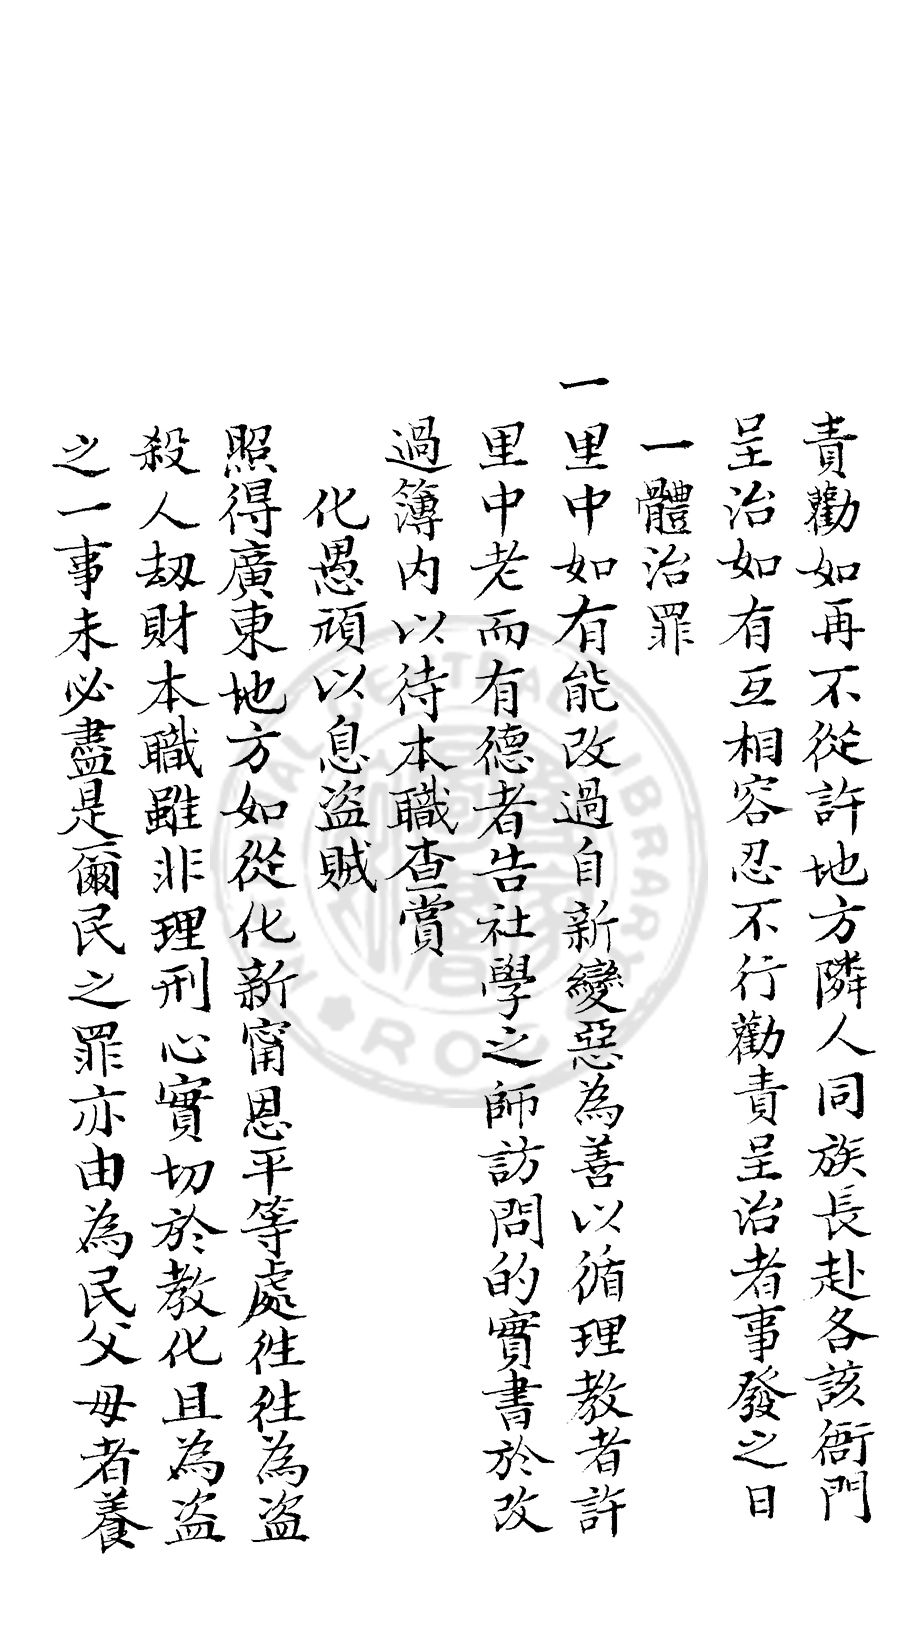 責勸如再不從許地方隣人同族長赴各該衙門
呈治如有互相容忍不行勸責呈治者事發之日
一體治罪
一里中如有能改過自新變惡為善以循理教者許
里中老而有德者告社學之師訪問的實書於改
過簿内以待本職查賞
化愚頑以息盗賊
照得廣東地方如從化新甯恩平等處徃徃為盗
殺人刼財本職雖非理刑心實切於教化且為盗
之一事未必盡是爾民之罪亦由為民父母者養
NATIONAL CENTRAL LIBRARY
R.O.C.